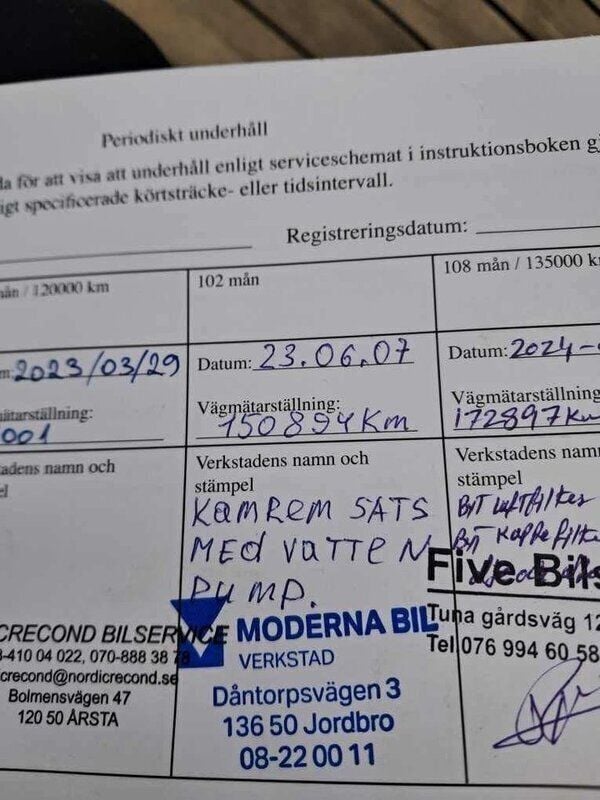 Periodiskt underhåll
för att visa att underhåll enligt serviceschemat i instruktionsboken
specificerade körtsträcke- eller tidsintervall.
Registreringsdatum:
/ 120000 km
102 mån
108 mån / 135000 km
2023/03/29
Datum: 23.06.07
Datum: 2024-
Vägmätarställning:
150894 Km
Vägmätarställning
172897 Km
001
namn och
Verkstadens namn och
stämpel
Verkstadens namn
stämpel
KAMREM SATS
MED VATTEN
PUMP.
BYT Luftfilter
BYT
CRECOND BILSERVICE
-410 04 022, 070-888 38 78
crecond@nordicrecond.se
Bolmensvägen 47
120 50 ÅRSTA
MODERNA BIL
VERKSTAD
Dåntorpsvägen 3
136 50 Jordbro
08-22 00 11
Five Bils
Tuna gårdsväg 12
Tel 076 994 60 58